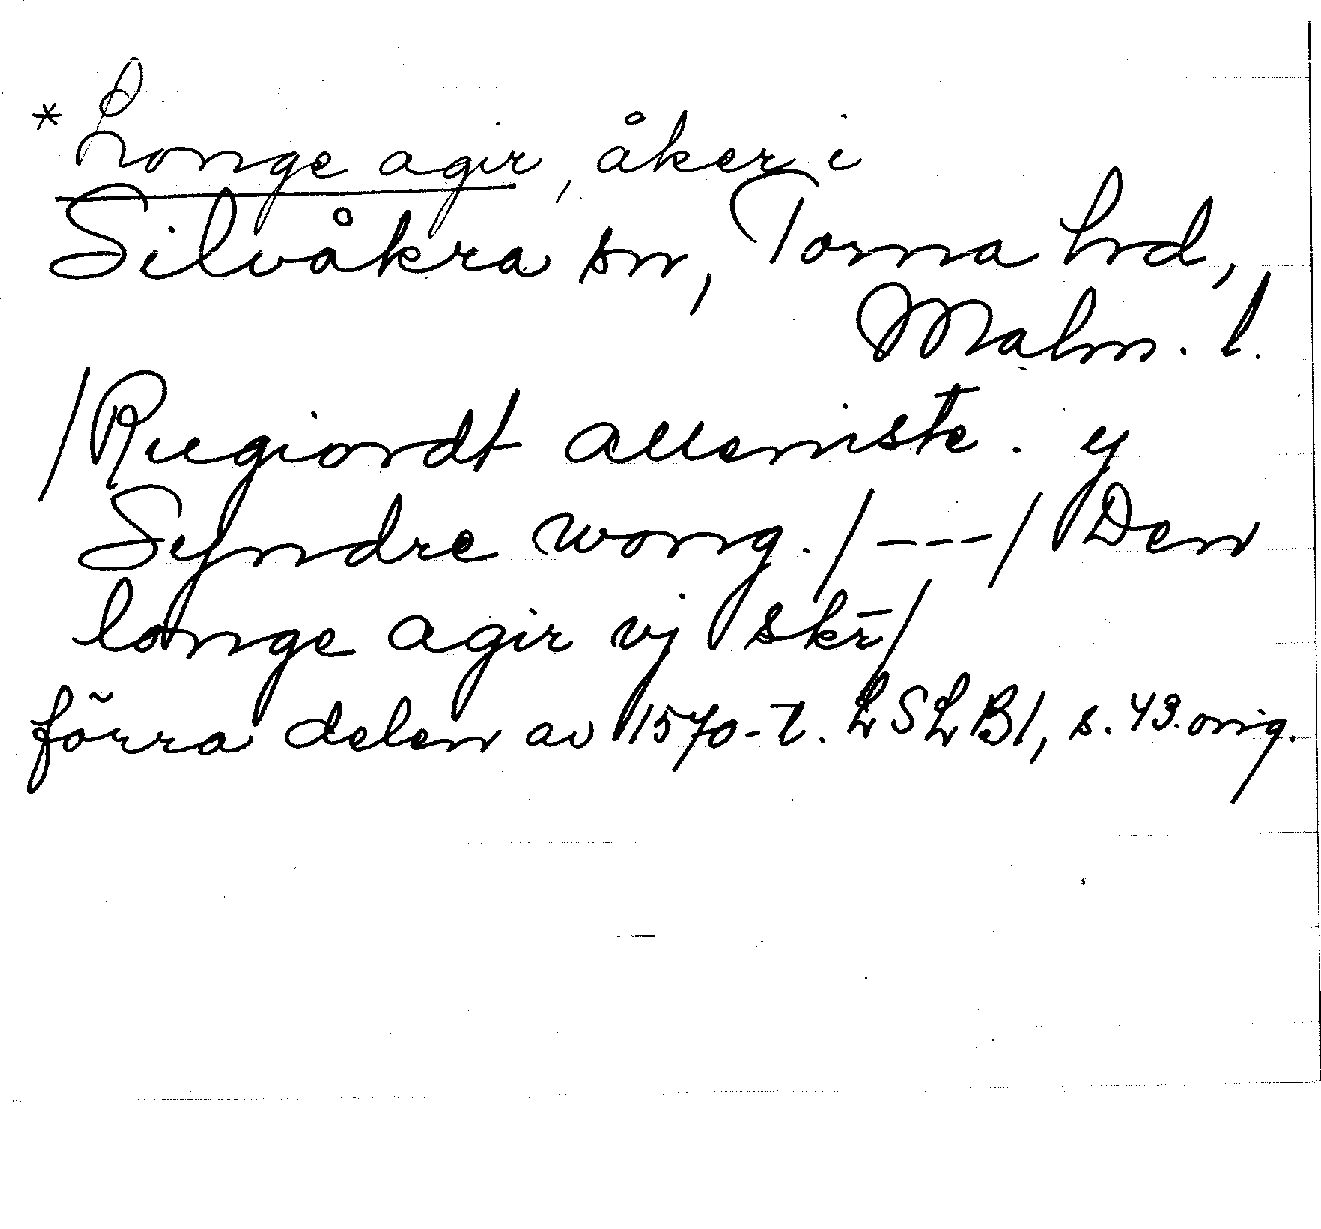 *Longe agir, åker i
Silvåkra sn, Torna hrd,
Malm. l.
/Rugiordt alleniste. y
Syndre wong. /---/ Den
longe agir vj skr̄/
förra delen av 1570-t. LSLB1, s. 43. orig.